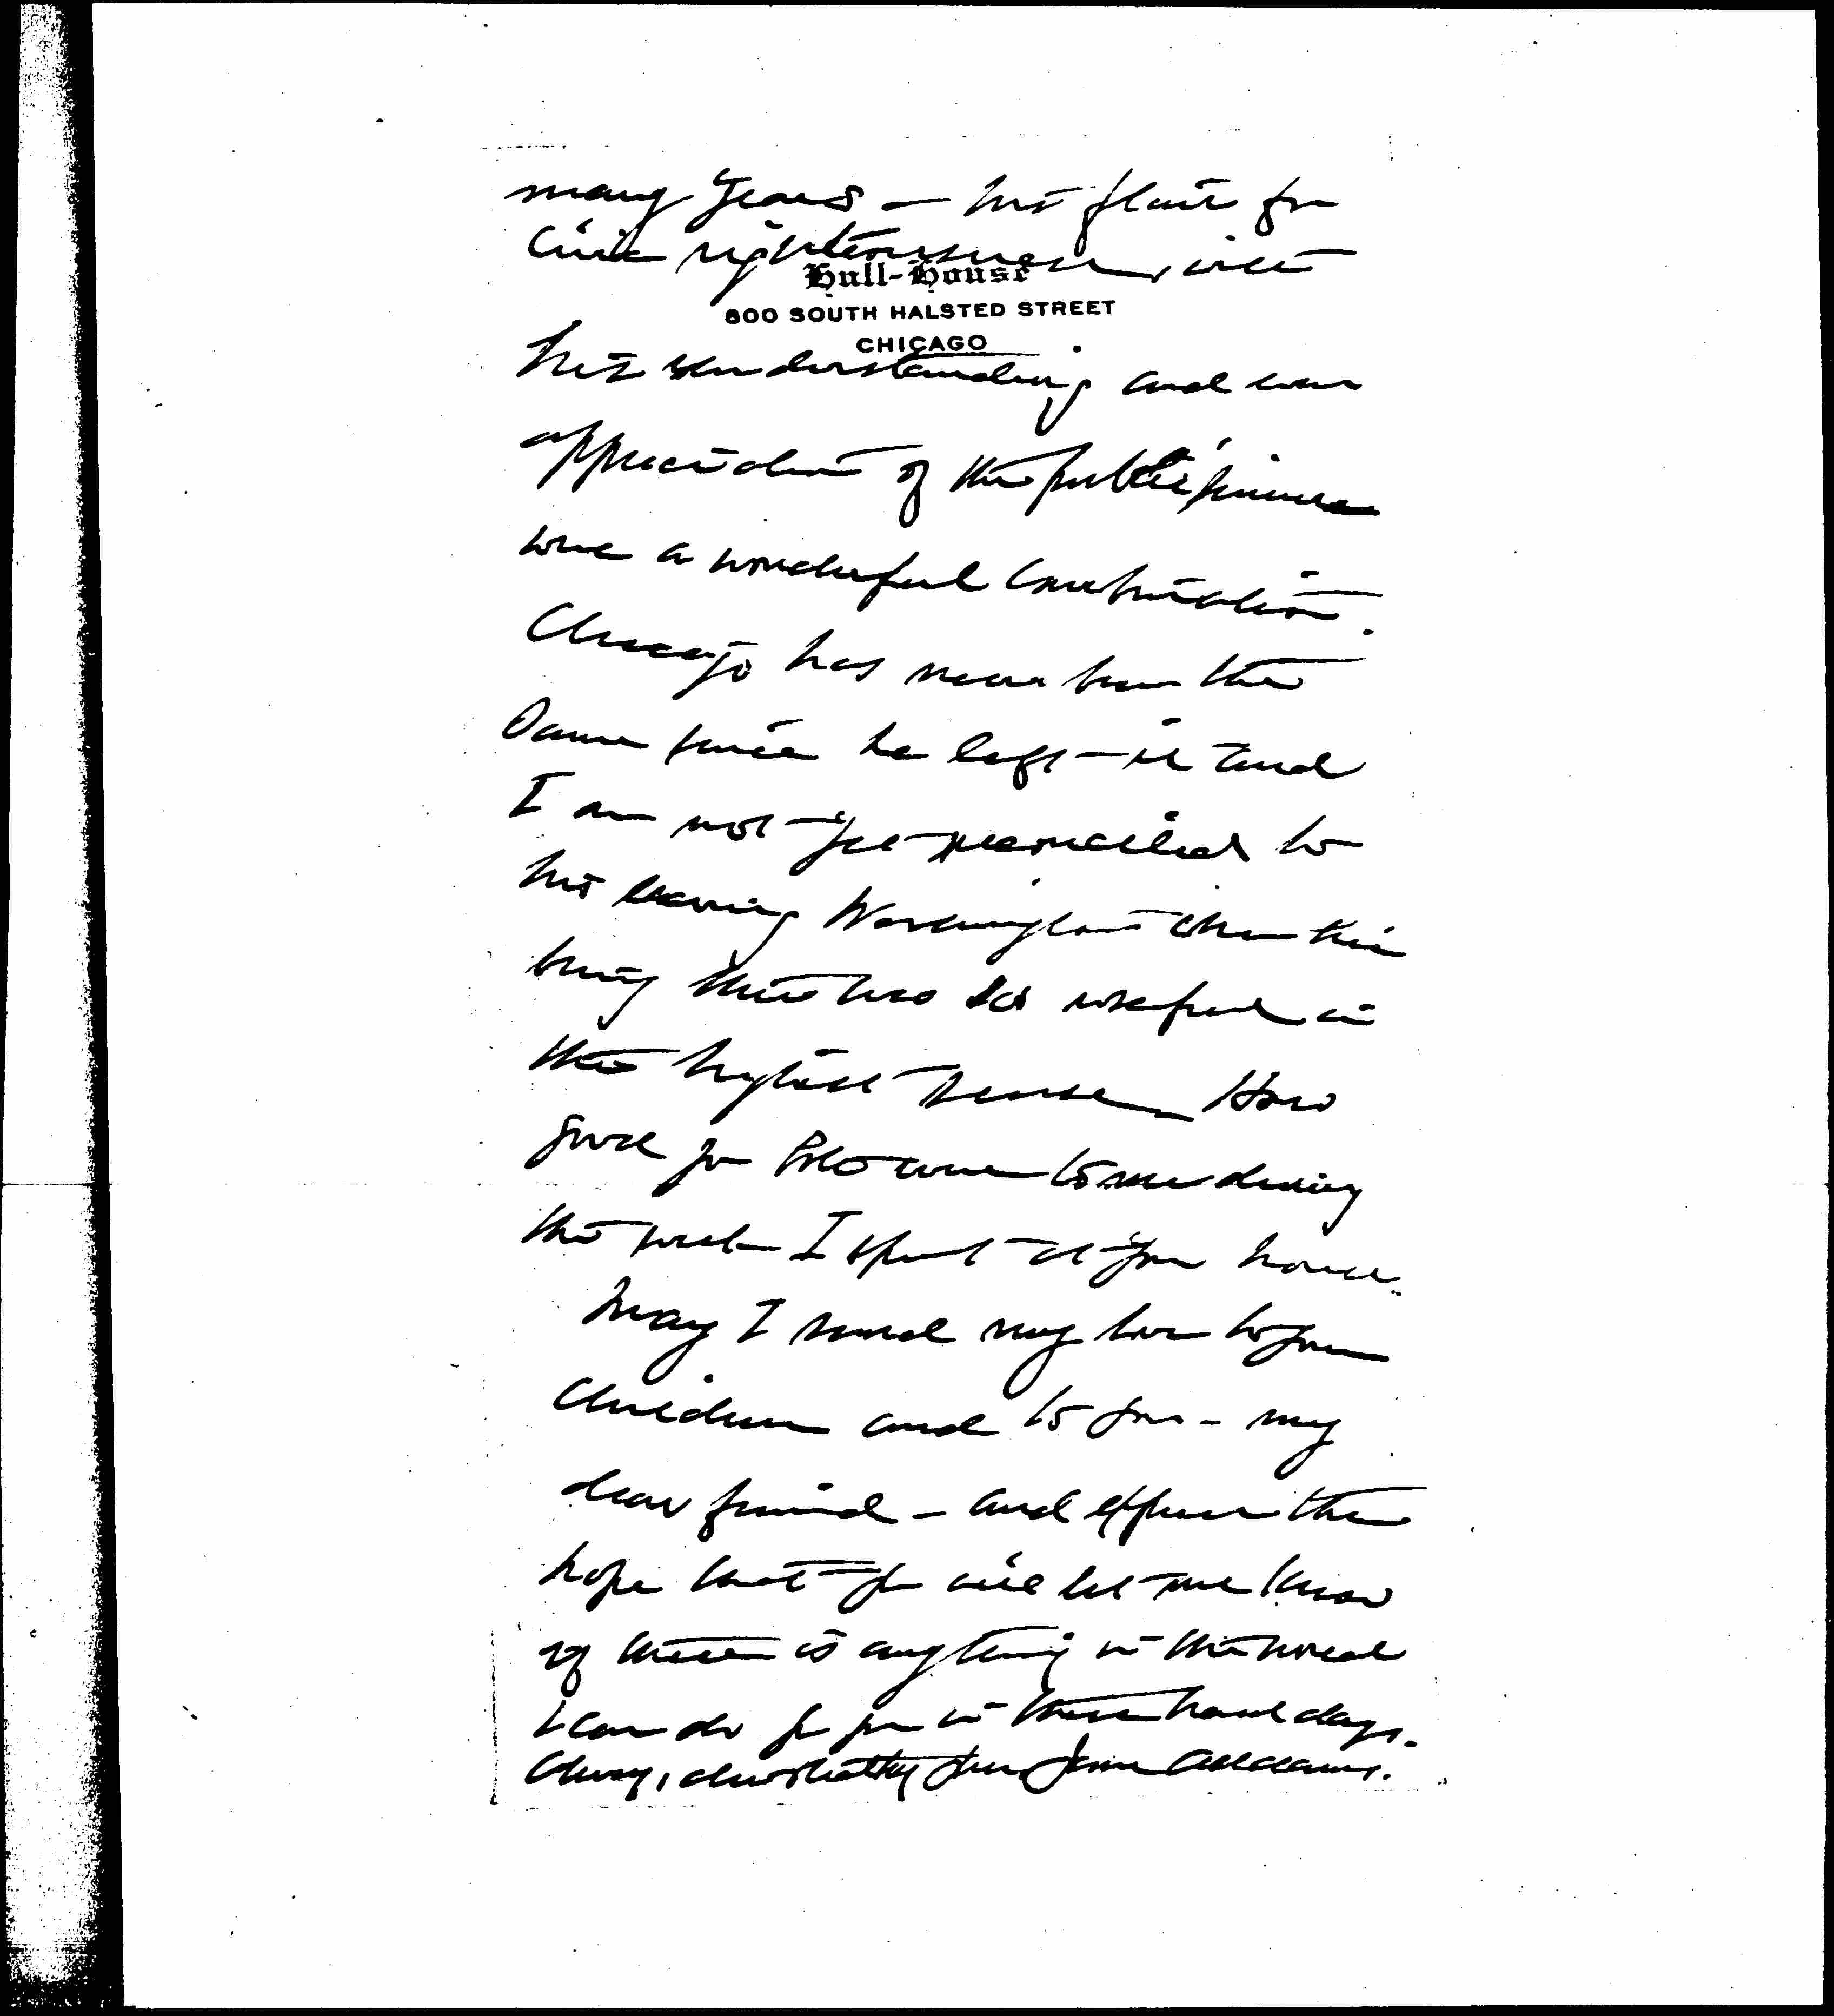 many years — his flair for
civic righteousness, with
Hull-House
800 SOUTH HALSTED STREET
CHICAGO
his understanding and
appreciation of the public
were a wonderful combination.
Chicago has never been the
same since he left it and
I am not yet reconciled to
his leaving Washington when his
being there was so useful in
the highest sense. How
good you both were to me during
the week I spent at your house.
May I send my love to your
children and to you — my
dear friend — and express the
hope that you will let me know
if there is anything in the world
I can do for you in these hard days.
Always, devotedly yours Jane Addams.